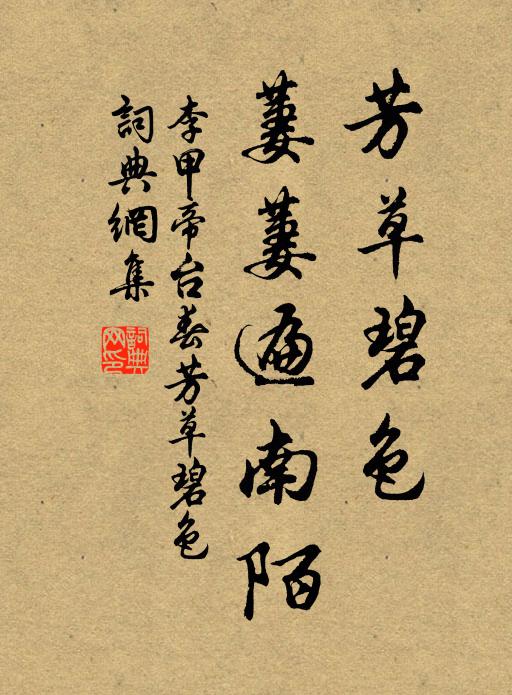 芳草碧色
萋萋遍南陌
李甲帝台春芳草碧色
詞典網集
詞典网印